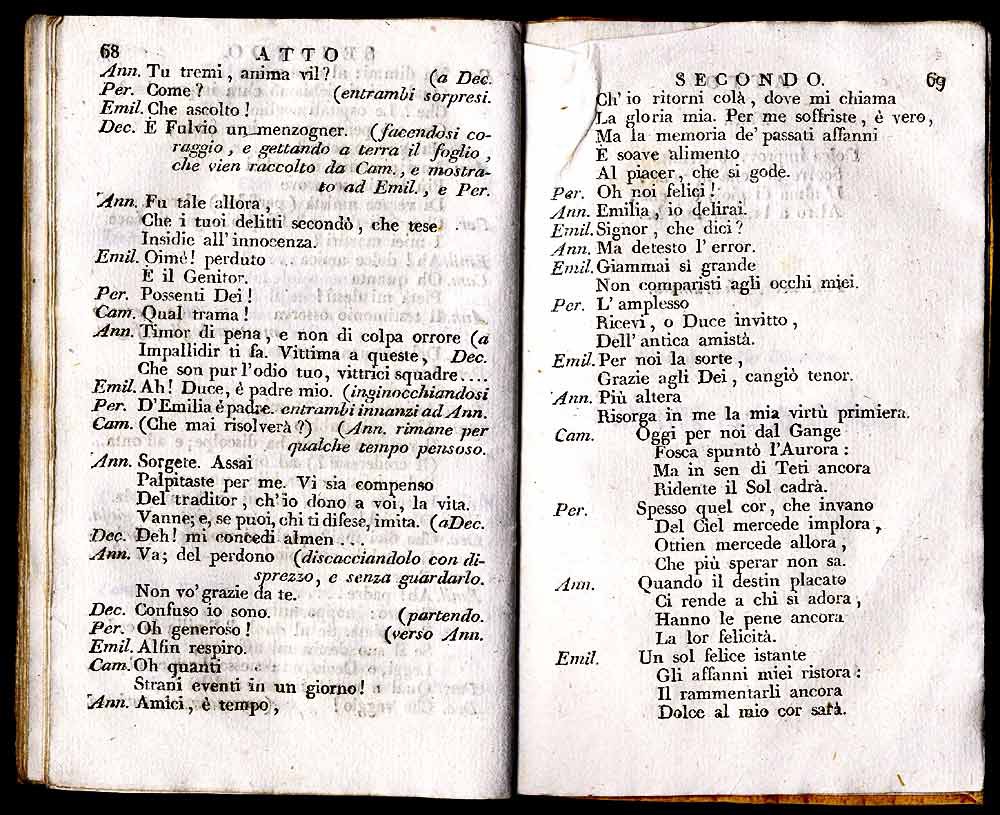 68 ATTO
Ann. Tu tremi, anima vil? (a Dec.
Per. Come? (entrambi sorpresi.
Emil. Che ascolto!
Dec. È Fulvio un menzogner. (facendosi co-
raggio, e gettando a terra il foglio,
che vien raccolto da Cam., e mostra-
to ad Emil., e Per.
Ann. Fu tale allora,
Che i tuoi delitti secondò, che tese
Insidie all' innocenza.
Emil. Oimè! perduto
È il Genitor.
Per. Possenti Dei!
Cam. Qual trama!
Ann. Timor di pena, e non di colpa orrore (a
Impallidir ti fa. Vittima a queste, Dec.
Che son pur l'odio tuo, vittrici squadre....
Emil. Ah! Duce, è padre mio. (inginocchiandosi
Per. D'Emilia è padre. entrambi innanzi ad Ann.
Cam. (Che mai risolverà?) (Ann. rimane per
qualche tempo pensoso.
Ann. Sorgete. Assai
Palpitaste per me. Vi sia compenso
Del traditor, ch'io dono a voi, la vita.
Vanne; e, se puoi, chi ti difese, imita. (a Dec.
Dec. Deh! mi concedi almen ...
Ann. Va; del perdono (discacciandolo con di-
sprezzo, e senza guardarlo.
Non vo' grazie da te.
Dec. Confuso io sono. (partendo.
Per. Oh generoso! (verso Ann.
Emil. Alfin respiro.
Cam. Oh quanti
Strani eventi in un giorno!
Ann. Amici, è tempo,
SECONDO. 69
Ch' io ritorni colà, dove mi chiama
La gloria mia. Per me soffriste, è vero,
Ma la memoria de' passati affanni
È soave alimento
Al piacer, che si gode.
Per. Oh noi felici!
Ann. Emilia, io delirai.
Emil. Signor, che dici?
Ann. Ma detesto l' error.
Emil. Giammai sì grande
Non comparisti agli occhi miei.
Per. L' amplesso
Ricevi, o Duce invitto,
Dell' antica amistà.
Emil. Per noi la sorte,
Grazie agli Dei, cangiò tenor.
Ann. Più altera
Risorga in me la mia virtù primiera.
Cam. Oggi per noi dal Gange
Fosca spuntò l'Aurora:
Ma in sen di Teti ancora
Ridente il Sol cadrà.
Per. Spesso quel cor, che invano
Del Ciel mercede implora,
Ottien mercede allora,
Che più sperar non sa.
Ann. Quando il destin placato
Ci rende a chi si adora,
Hanno le pene ancora
La lor felicità.
Emil. Un sol felice istante
Gli affanni miei ristora:
Il rammentarli ancora
Dolce al mio cor sarà.